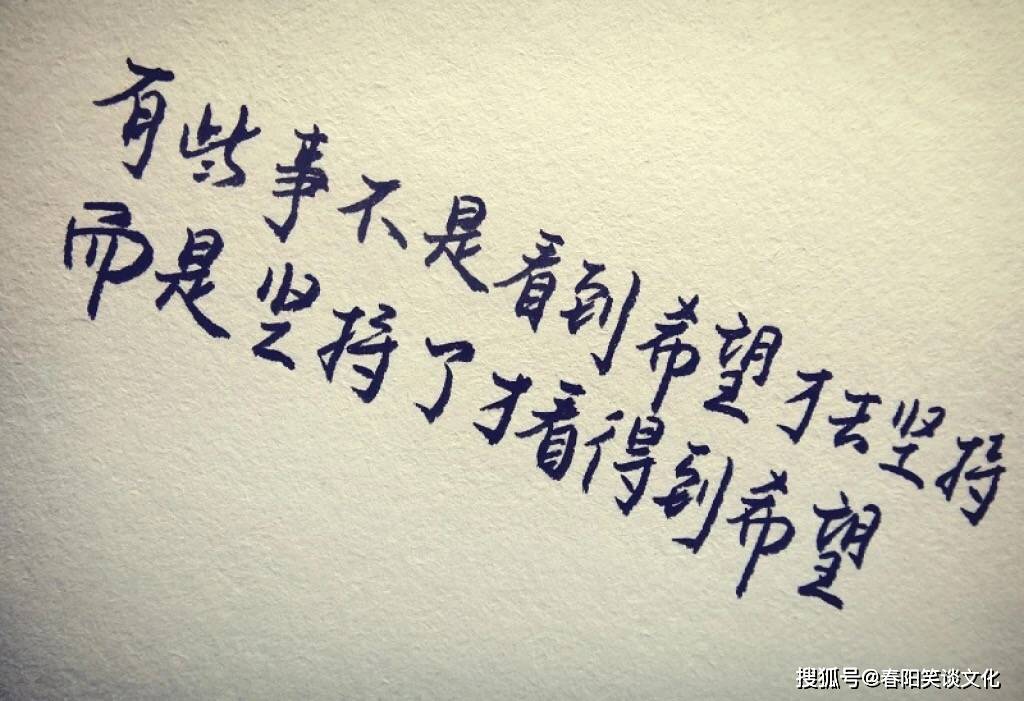 有些事不是看到希望才去坚持
而是坚持了才看得到希望
搜狐号@春阳笑谈文化